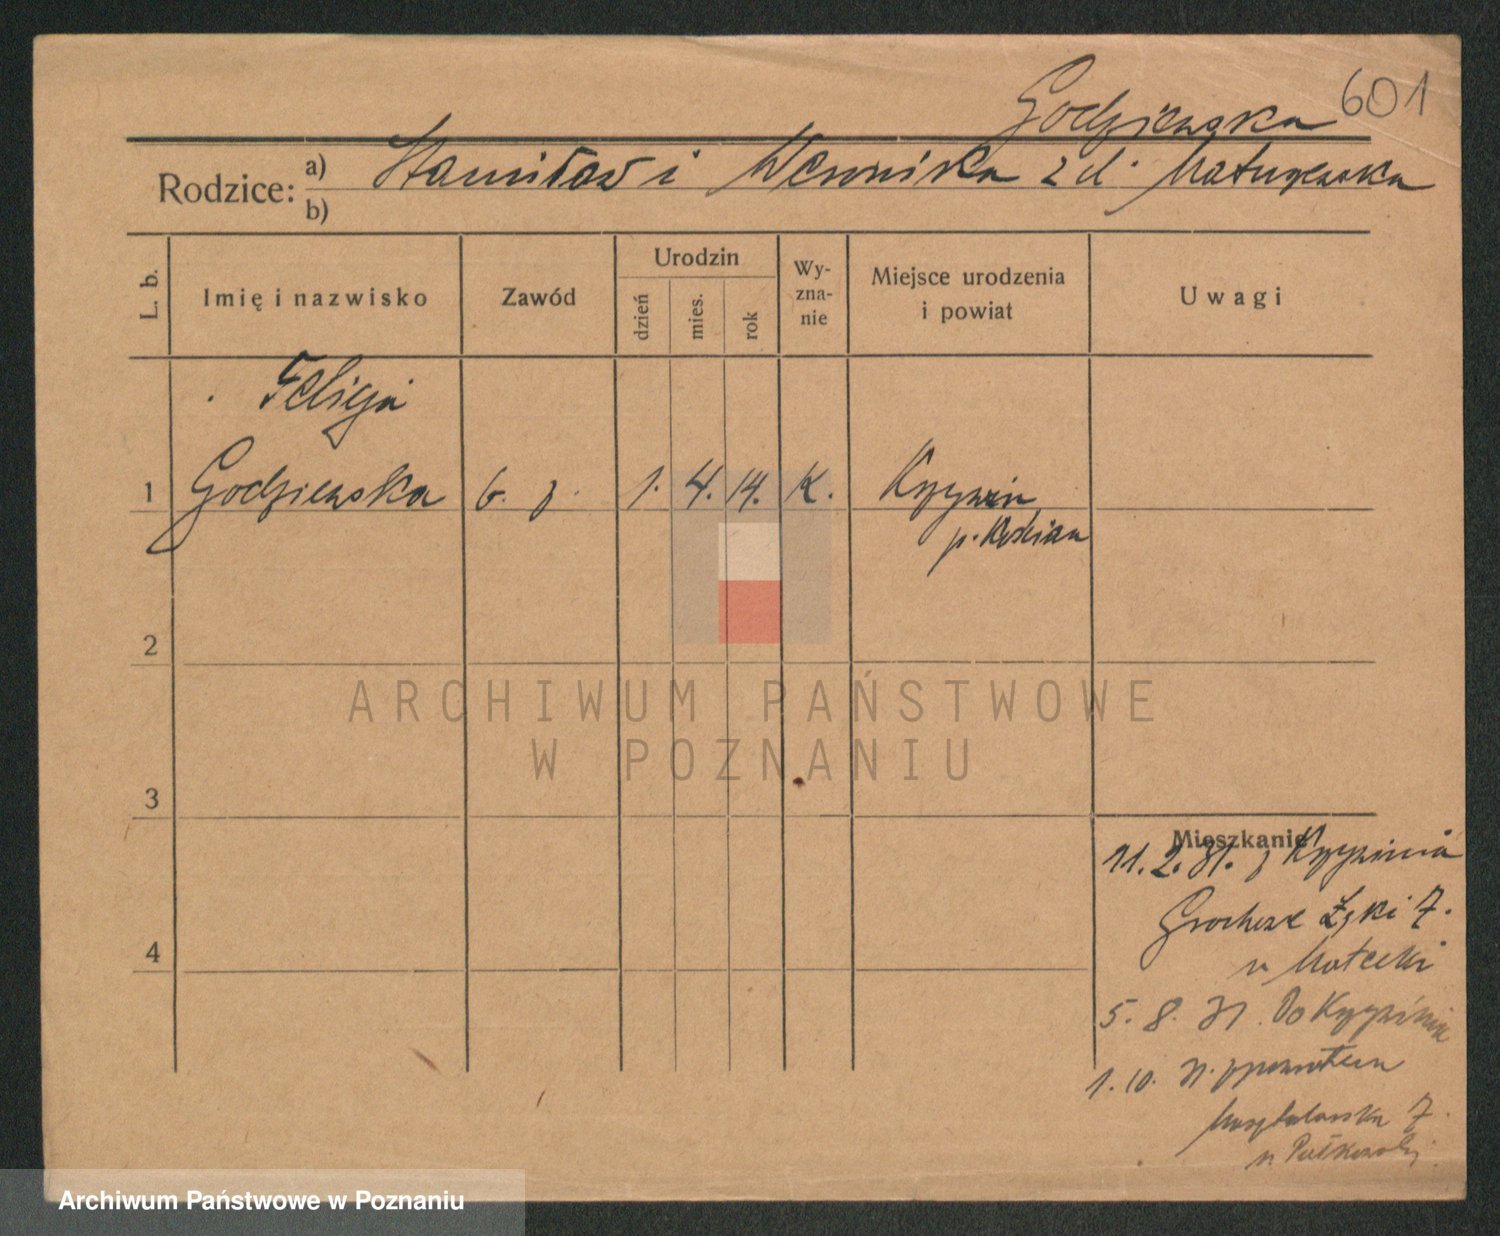 Godziewska 601
Rodzice: a) Stanisław i Weronika z d. Matuszewska
b)
L. b.
Imię i nazwisko
Zawód
Urodzin
dzień
mies.
rok
Wy-
zna-
nie
Miejsce urodzenia
i powiat
Uwagi
Felicja
1 Godziewska b. z. 1. 4. 14. K. Krzywin
p. Kościan
2
3
4
Mieszkanie
11. 2. 31. z Krzywinia
Grochowe Łąki 7.
u Matecki
5. 8. 31. Do Krzywinia
1. 10. 31. z powrotem
Masztalarska 7.
u
ARCHIWUM PAŃSTWOWE
W POZNANIU
Archiwum Państwowe w Poznaniu